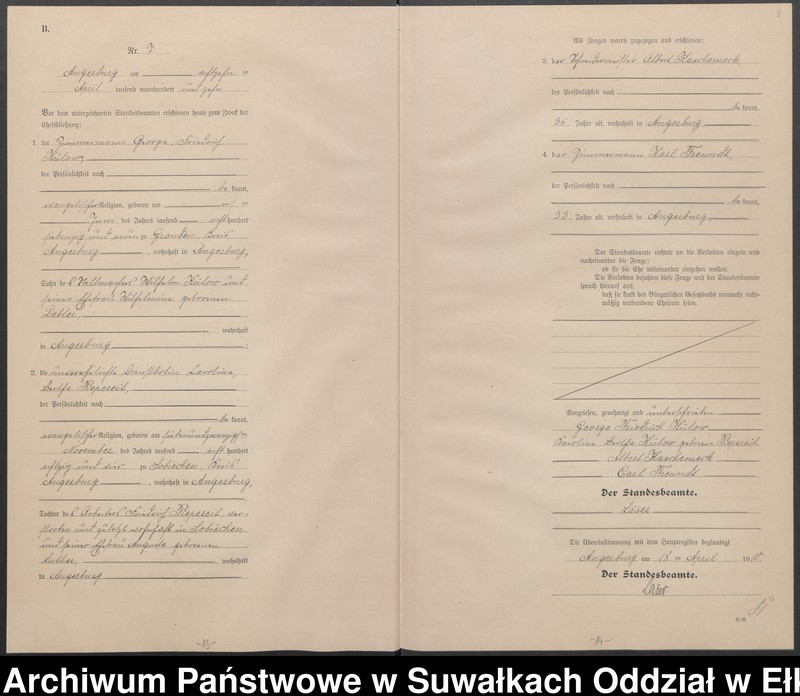 B.
Nr. 7
Angerburg am achtzehn ten
April tausend neunhundert und zehn
Vor dem unterzeichneten Standesbeamten erschienen heute zum Zweck der
Eheschließung:
1. der Zimmermann George Friedrich
Külow,
der Persönlichkeit nach
be kannt,
evangelischer Religion, geboren am
Juni des Jahres tausend acht hundert
siebenzig und neun zu Gronden, Kreis
Angerburg, wohnhaft in Angerburg,
Sohn des Wilhelm Külow und
seiner Ehefrau Wilhelmine geborenen
wohnhaft
in Angerburg;
2. die unverehelichte Dienstbotin Caroline
Bertha Repereit,
der Persönlichkeit nach
be kannt,
evangelischer Religion, geboren am siebenundzwanzigsten
November des Jahres tausend acht hundert
achtzig und vier zu Sobiechen, Kreis
Angerburg, wohnhaft in Angerburg,
Tochter des Arbeiters Friedrich Repereit, ver-
storben und zuletzt wohnhaft in Sobiechen
und seiner Ehefrau Auguste geborenen
wohnhaft
in Angerburg
-13-
8
Als Zeugen waren zugezogen und erschienen:
3. der Schneidermeister Albert Kaschemeck,
der Persönlichkeit nach
be kannt,
36 Jahre alt, wohnhaft in Angerburg
4. der Zimmermann Karl Freundt,
der Persönlichkeit nach
be kannt,
33 Jahre alt, wohnhaft in Angerburg
Der Standesbeamte richtete an die Verlobten einzeln und
nacheinander die Frage:
ob sie die Ehe miteinander eingehen wollen.
Die Verlobten bejahten diese Frage und der Standesbeamte
sprach hierauf aus,
daß sie kraft des Bürgerlichen Gesetzbuchs nunmehr recht-
mäßig verbundene Eheleute seien.
Vorgelesen, genehmigt und unterschrieben
George Friedrich Külow
Karoline Bertha Külow geborene Repereit
Albert Kaschemeck
Carl Freundt
Der Standesbeamte.
Läser
Die Übereinstimmung mit dem Hauptregister beglaubigt
Angerburg am 18 ten April 1910.
Der Standesbeamte.
Läser
-14-
Archiwum Państwowe w Suwałkach Oddział w Eł